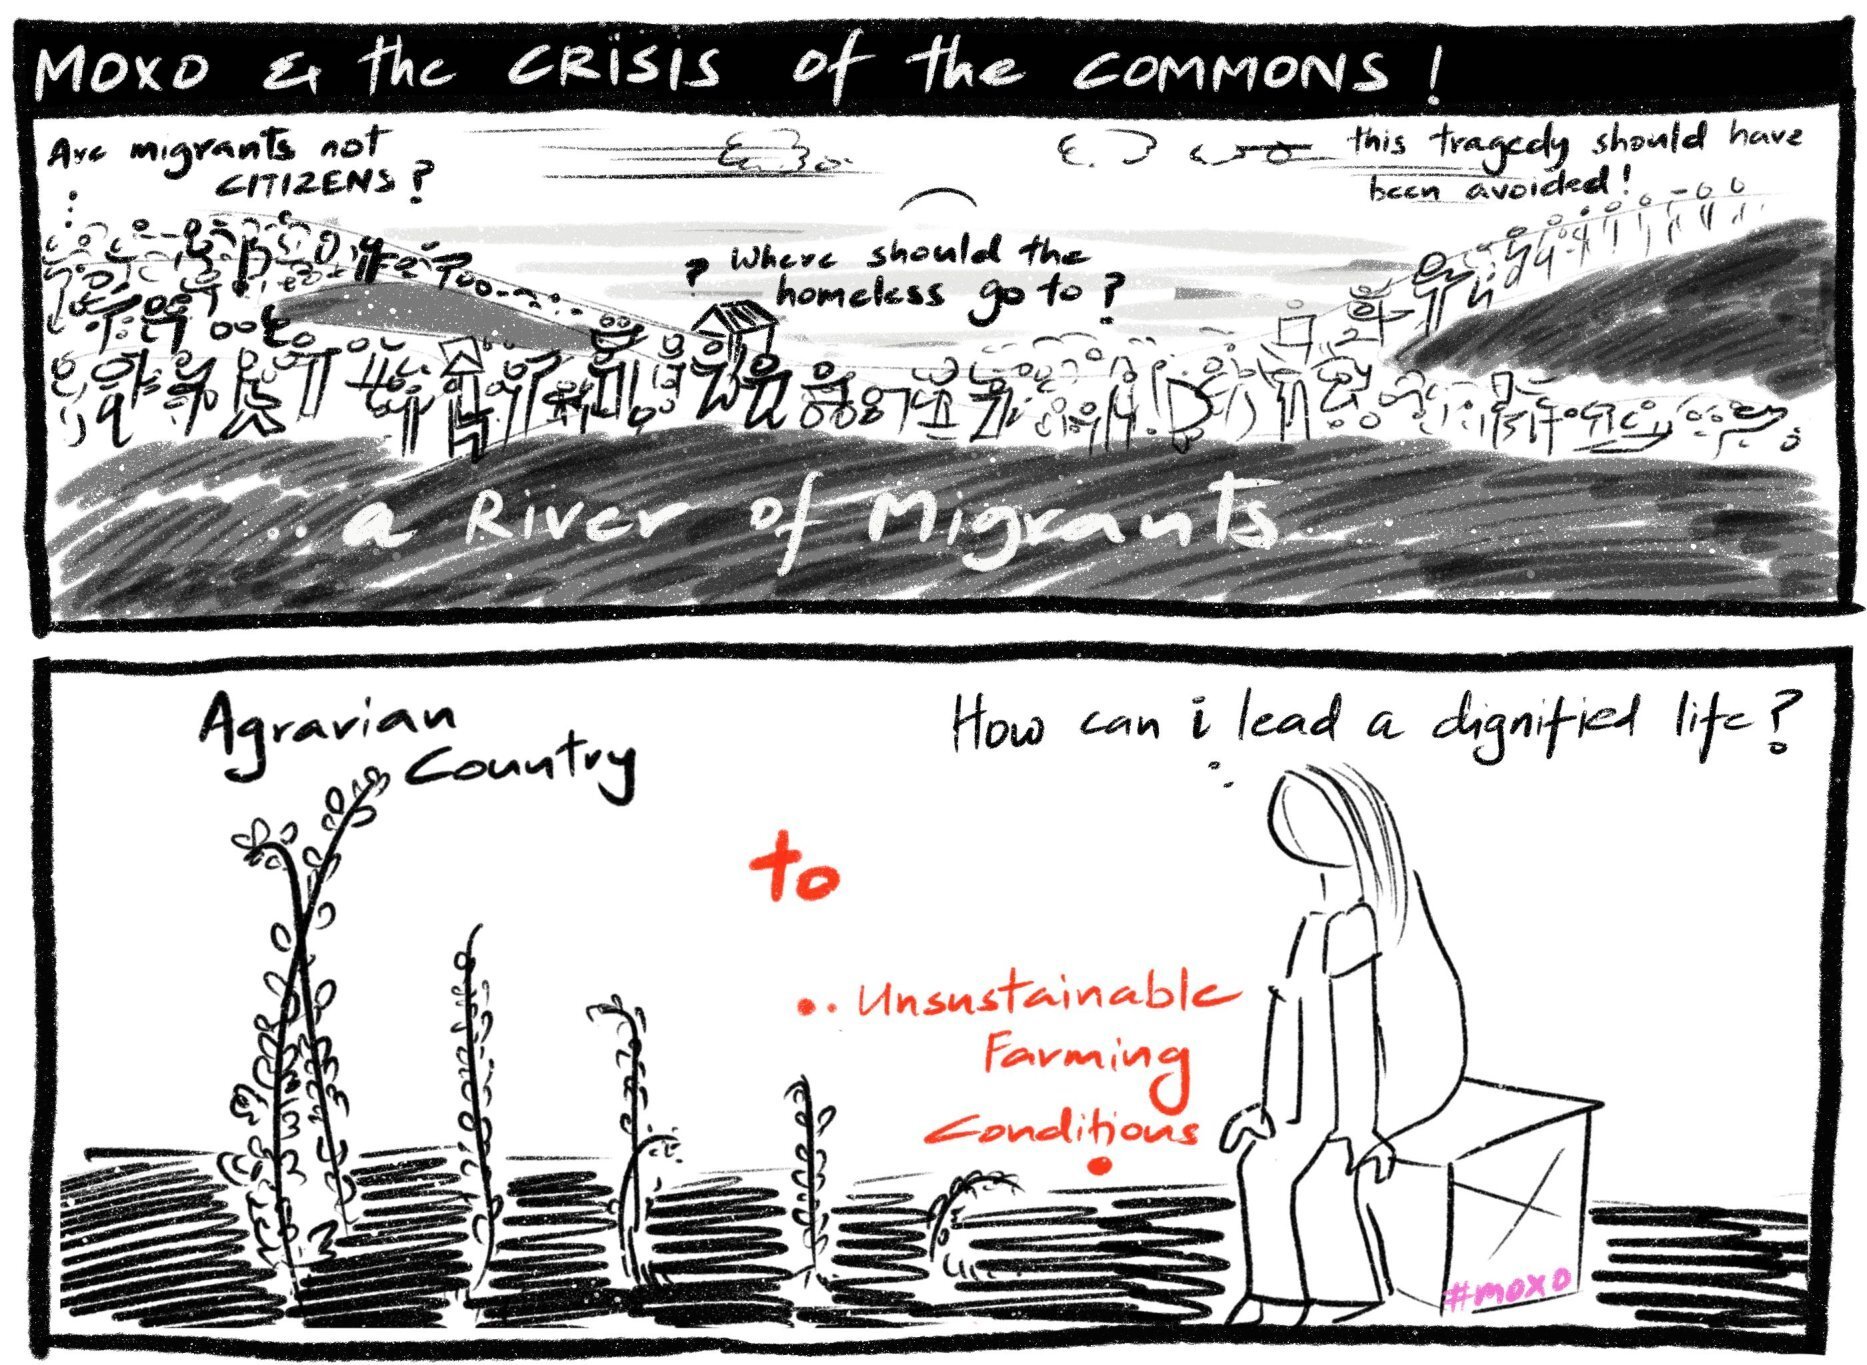 MOXO & the CRISIS of the COMMONS!
Are migrants not
CITIZENS?
this tragedy should have
been avoided!
? Where should the
homeless go to?
.. a River of Migrants...
Agrarian
Country
How can i lead a dignified life?
to
.. Unsustainable
Farming
Conditions
#moxo